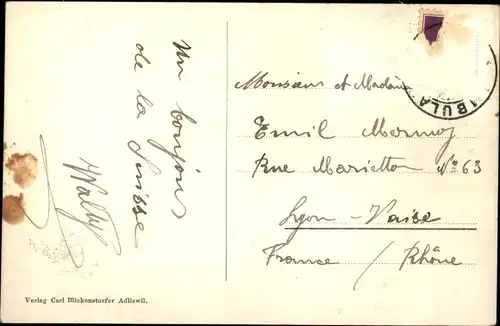 Un bonjour
de la Suisse
Wally
Monsieur et Madame
Emil
Rue Marietton No 63
Lyon - Vaise
France / Rhône
BULA
Verlag Carl Blickenstorfer Adliswil.